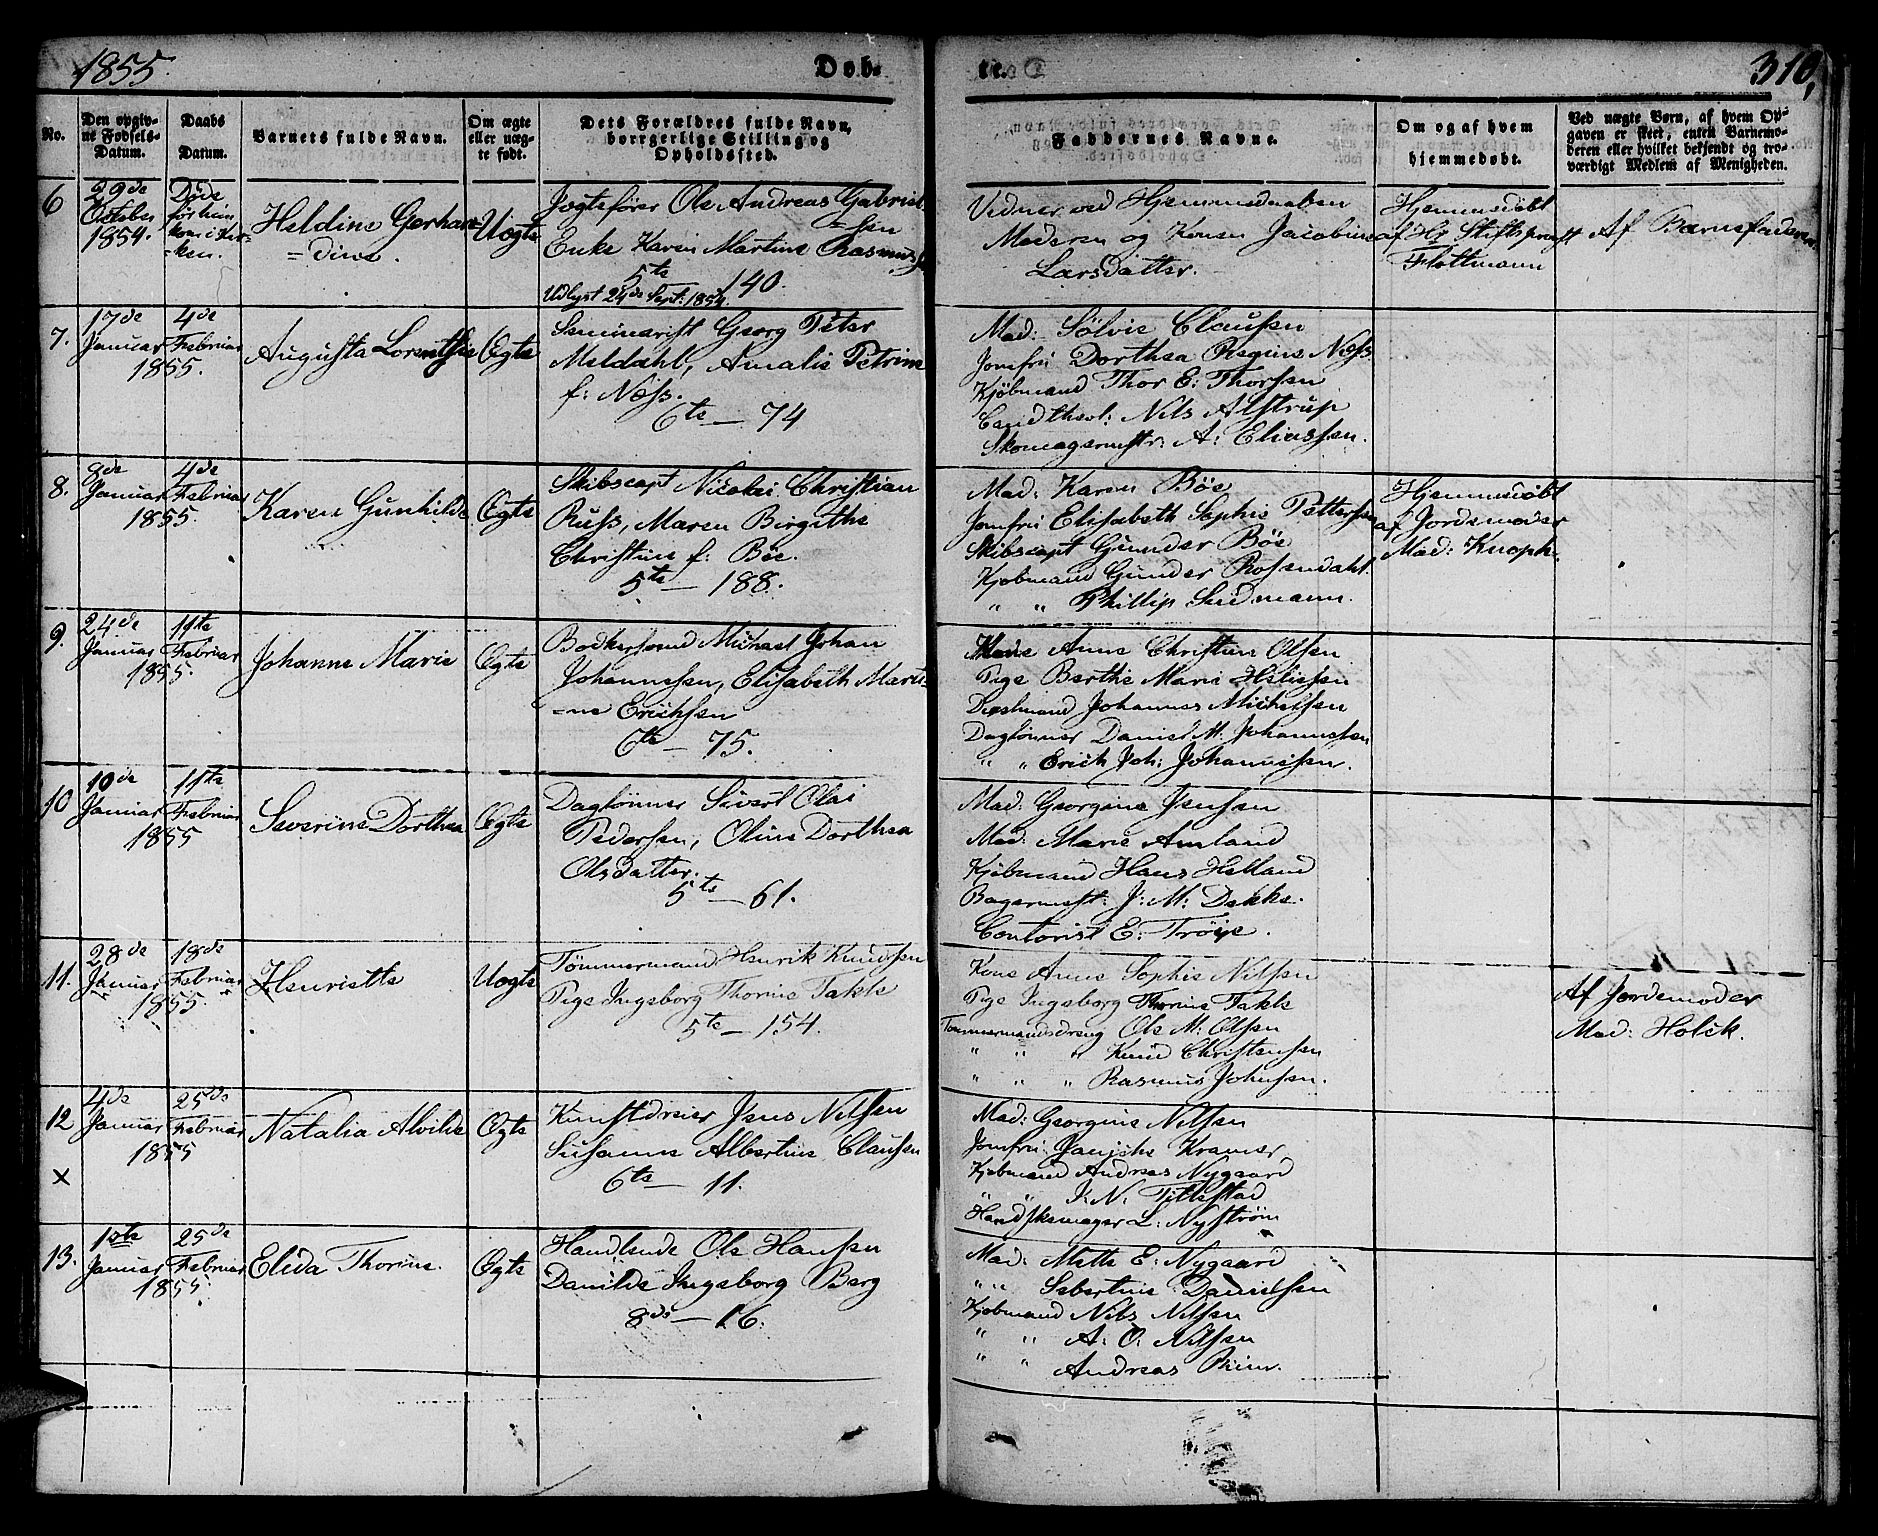 1855.
Døb-
te.
310,
No.
Den opgiv-
ne Fødsels-
Datum.
Daabs
Datum.
Barnets fulde Navn.
Om ægte
eller uæg-
te født.
Dets Forældres fulde Navn,
borgerlige Stilling og
Opholdssted.
Faddernes Navne.
Om og af hvem
hjemmedøbt.
Ved uægte Børn, af hvem Op-
gaven er skeet, enten Barnemo-
deren eller hvilket bekjendt og tro-
værdigt Medlem af Menigheden.
6
29de
October
1854.
Døde
før hun
kom i Kir-
=ken.
Heldine Gerhar-
=dine.
Uægte
Jægtefører Ole Andreas Gabriel-
=sen
Enke Karen Martine Rasmuss
5te 140.
Udlyst 24de Sept: 1854.
Vidner ved Hjemmedaaben
Moderen og Konen Jacobine
Larsdatter.
Hjemmedøbt
af Hr Stiftsprovst
Flottmann
Af Barnefaderen
7.
17de
Januar
1855.
4de
Februar
Augusta Lorentse
Ægte
Seminarist Georg Peter
Meldahl, Amalie Petrine
f: Næss.
6te — 74
Mad: Sølvie Claussen
Jomfru Dorthea Regine Næss
Kjøbmand Thor E: Thorssen
Cand theol: Nils Alstrup
Skomagermstr: A: Eliassen.
8.
8de
Januar
1855.
4de
Februar
Karen Gunhilde
Ægte
Skibscapt Nicolai Christian
Russ, Maren Birgithe
Christine f: Bøe.
5te — 188.
Mad: Karen Bøe
Jomfru Elisabeth Sophie Pettersen
Skibscapt Gunder Bøe
Kjøbmand Gunder Rosendahl.
" " Phillip Sundmann.
Hjemmedøbt
af Jordemoder
Mad: Knoph.
9.
24de
Januar
1855.
11te
Februar
Johanne Marie
Ægte
Bødkersvend Michael Johan
Johannessen, Elisabeth Marti-
=ne Erichsen
6te — 75.
Kone Anne Christine Olsen
Pige Berthe Marie Heliesen
Johannes Michelsen
Daglønner Daniel M: Johannessen
" " Erich Joh: Johannessen.
10
10de
Januar
1855
11te
Februar
Severine Dorthea
Ægte
Daglønner Sivert Olai
Pedersen, Oline Dorthea
Olsdatter.
5te — 61.
Mad: Georgine Jensen
Mad: Marie Amland
Kjøbmand Hans Helland
Bagermst: J: M: Dekke.
Contorist E: Trøye.
11.
28de
Januar
1855.
18de
Februar
Henriette
Uægte
Tømmermand Henrik Knudsen
Pige Ingeborg Thorine Takle
5te — 154.
Kone Anne Sophie Nilsen
Pige Ingeborg Thorine Takle
Tømmermandsdreng Ole M: Olsen
" " " Knud Christensen
" " " Rasmus Johnsen.
Af Jordemoder
Mad: Holck.
12
×
4de
Januar
1855
25de
Februar
Natalia Alvilde
Ægte
Kunstdreier Jens Nilsen
Susanne Albertine Clausen
6te — 11.
Mad: Georgine Nilsen
Jomfru: Janiche Kramer
Kjøbmand Andreas Nygaard
" " J: N: Tillestad
Handskemager L: Nystrøm
13.
1ste
Januar
1855.
25de
Februar
Elida Thorine.
Ægte
Handlende Ole Hansen
Danilde Ingeborg Berg
8de — 16.
Mad: Mette E: Nygaard
" " Sebertine Danielsen
Kjøbmand Nils Nilsen
" " A: O: Nilsen
" " Andreas Riim.